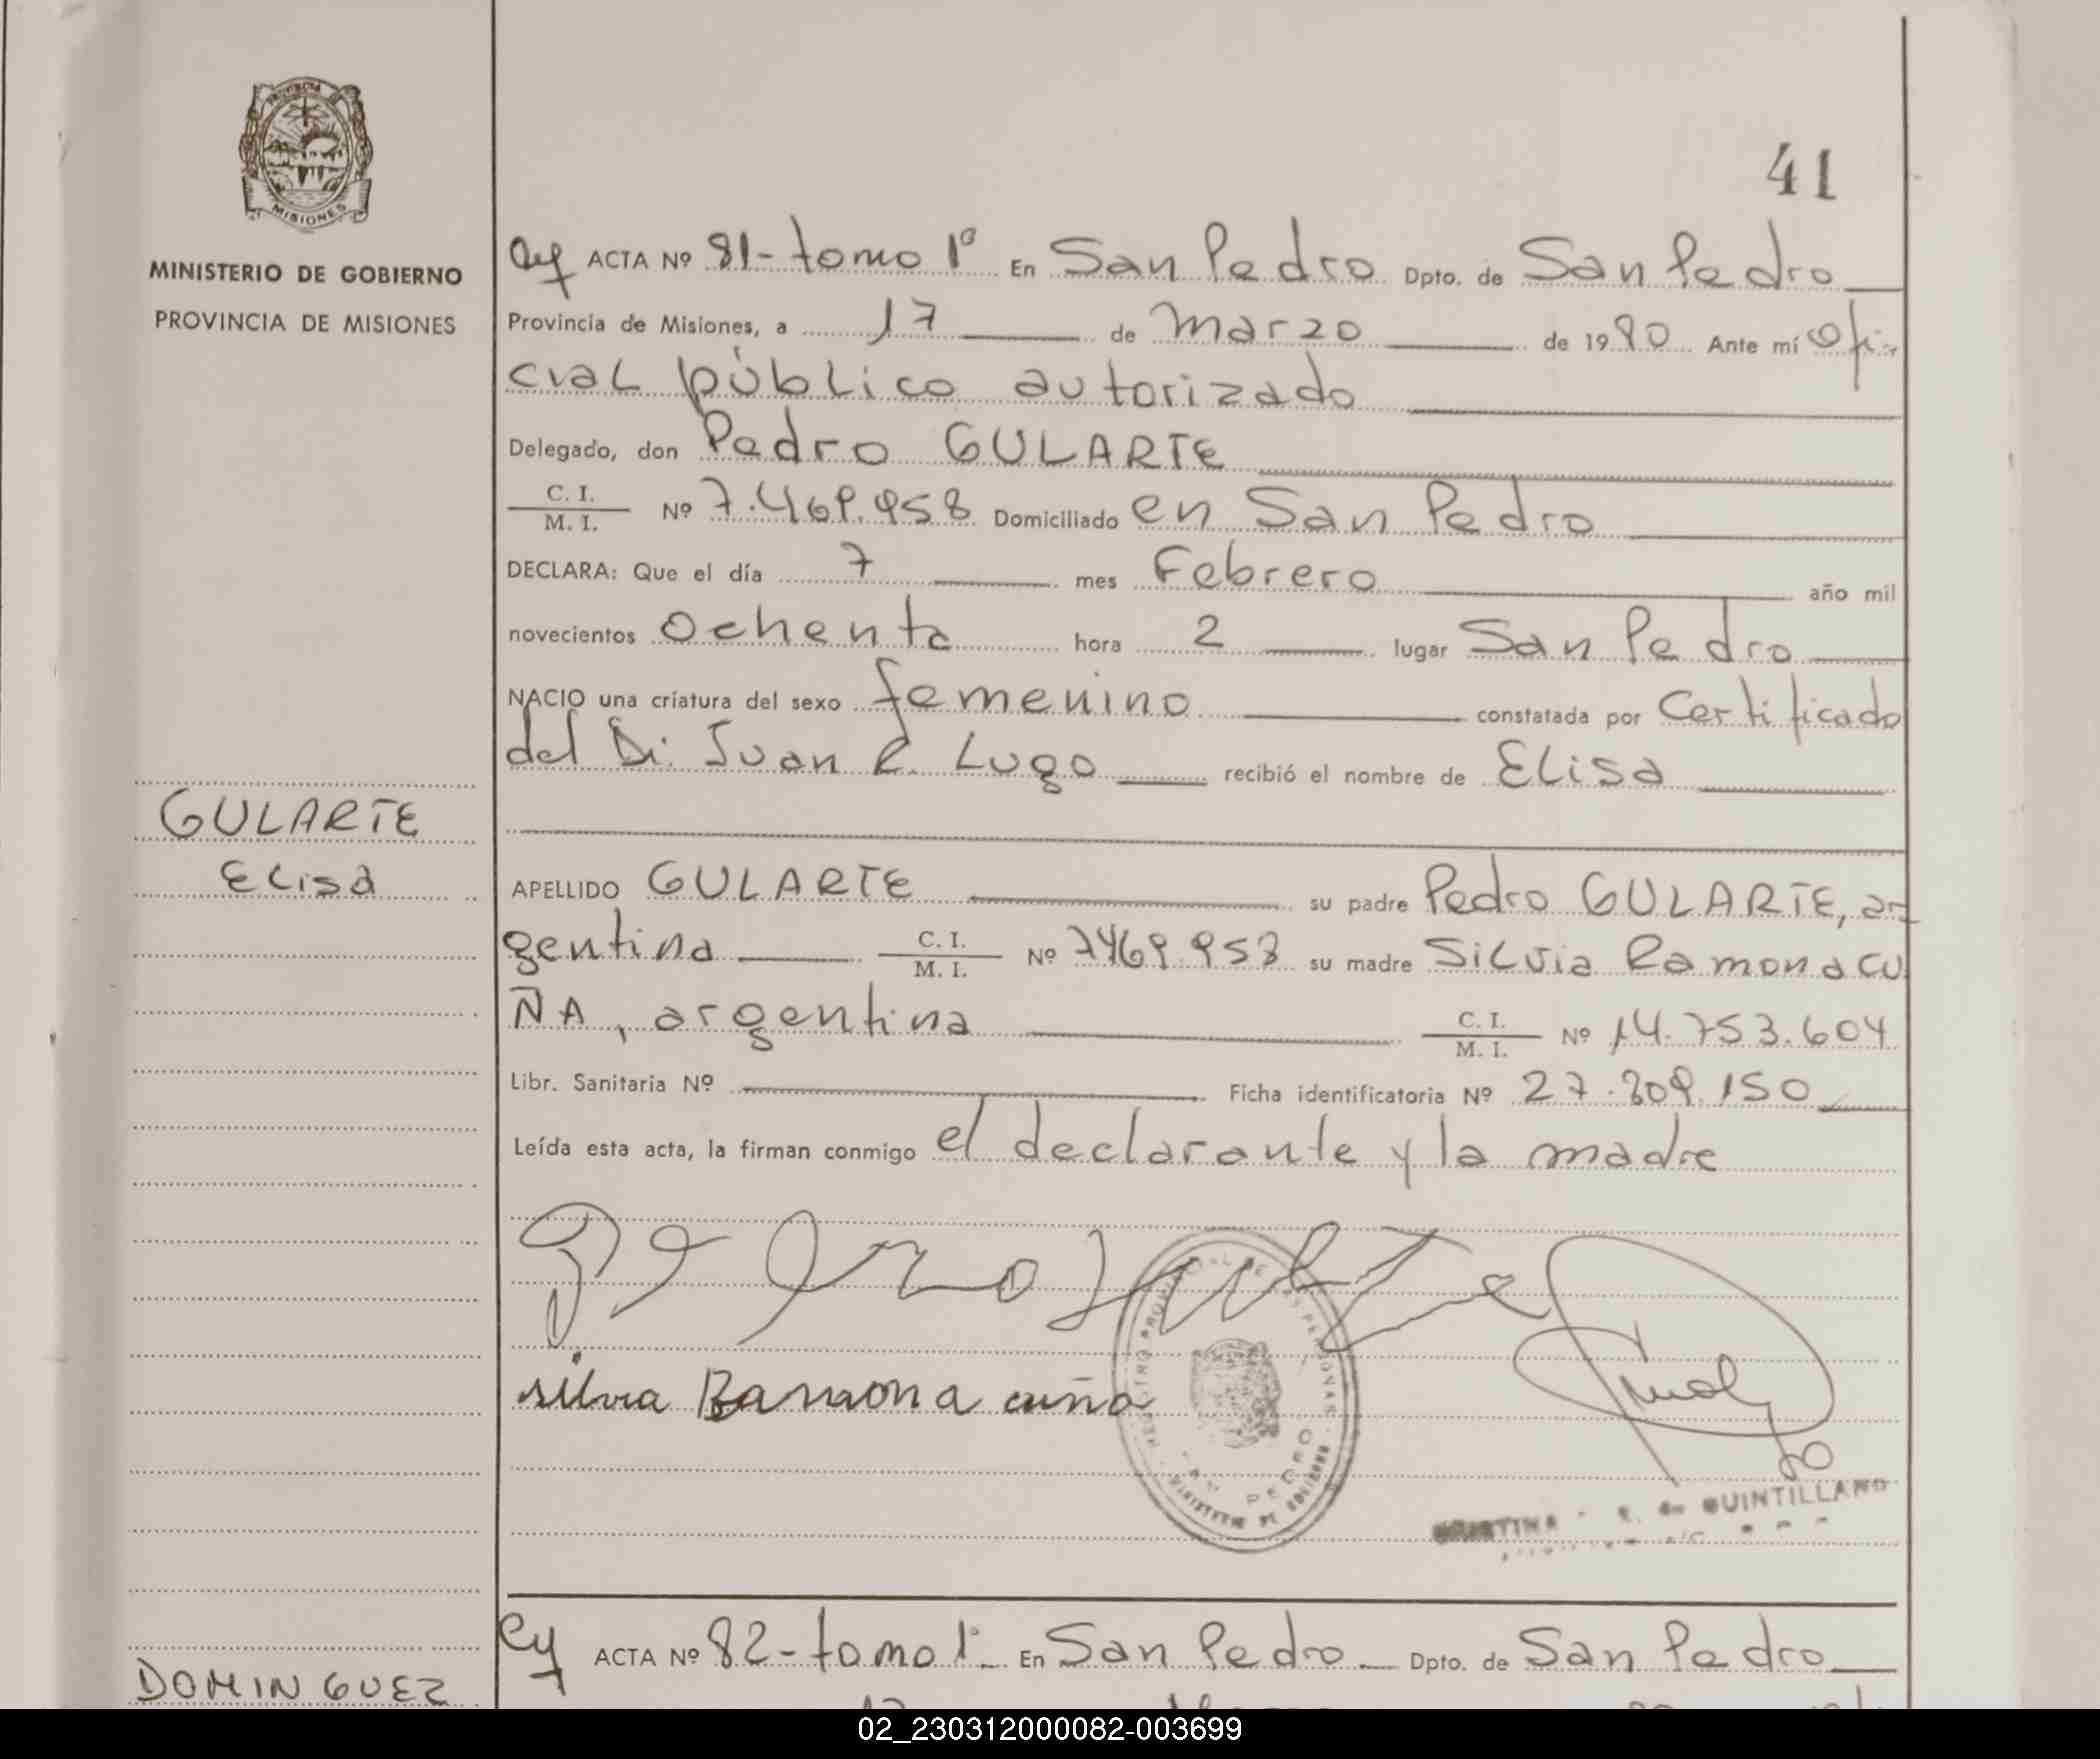 MISIONES
MINISTERIO DE GOBIERNO
PROVINCIA DE MISIONES
41
ACTA Nº 81- tomo 1º En San Pedro Dpto. de San Pedro
Provincia de Misiones, a 17 de Marzo de 1980 Ante mí Ofi-
cial público autorizado
Delegado, don Pedro GULARTE
C. I.
M. I. Nº 7.469.958 Domiciliado en San Pedro
DECLARA: Que el día 7 mes Febrero año mil
novecientos Ochenta hora 2 lugar San Pedro
NACIO una criatura del sexo femenino constatada por Certificado
del Dr. Juan R. Lugo recibió el nombre de Elisa
GULARTE
Elisa
APELLIDO GULARTE su padre Pedro GULARTE, ar
gentina C. I.
M. I. Nº 7469.958 su madre Silvia Ramona CU
ÑA, argentina C. I.
M. I. Nº 14.753.604
Libr. Sanitaria Nº Ficha identificatoria Nº 27.809.150
Leída esta acta, la firman conmigo el declarante y la madre
silvia Ramona cuña
SAN PEDRO
MINISTERIO DE GOBIERNO
CRISTINA R. de QUINTILLANO
ACTA Nº 82- tomo 1º En San Pedro Dpto. de San Pedro
DOMINGUEZ
02_230312000082-003699